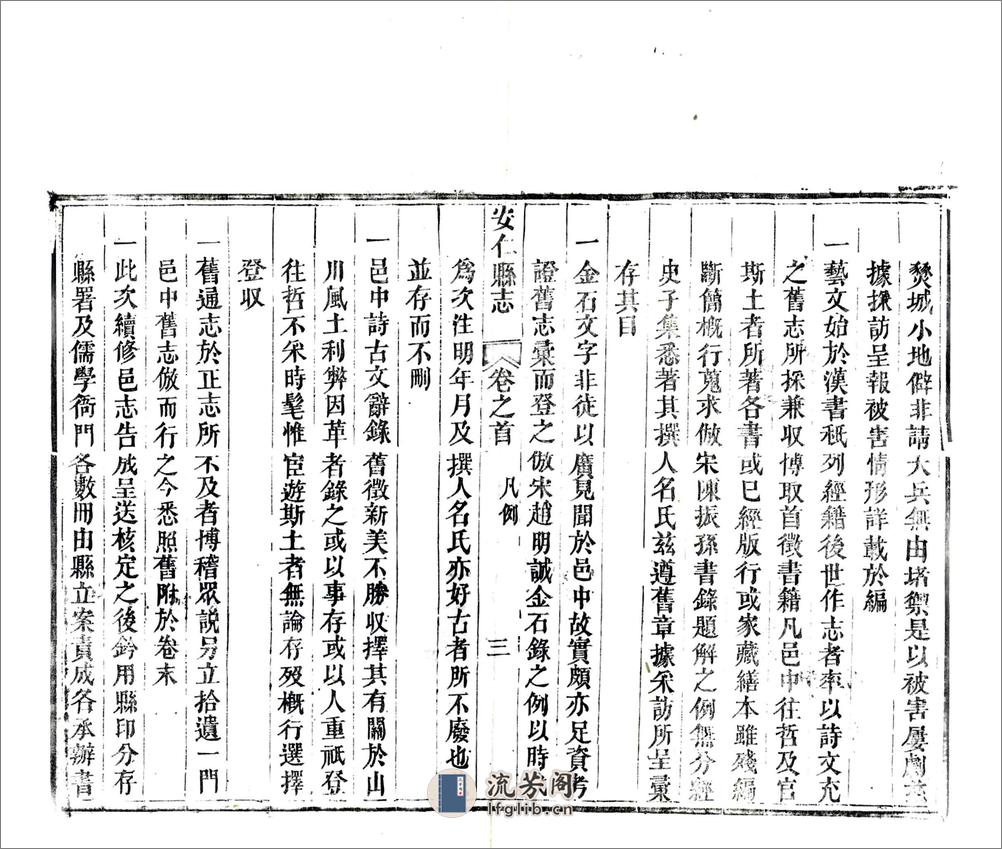 焚城小地僻非請大兵無由堵禦是以被害屢劇茲
據採訪呈報被害情形詳載於編
一藝文始於漢書祇列經籍後世作志者率以詩文充
之舊志所採兼取博取首徵書籍凡邑中往哲及官
斯土者所著各書或已經版行或家藏繕本雖殘編
斷簡槪行蒐求倣宋陳振孫書錄題解之例無分經
史子集悉著其撰人名氏茲遵舊章據采訪所呈彙
存其目
一金石文字非徒以廣見聞於邑中故實頗亦足資考
證舊志彙而登之倣宋趙明誠金石錄之例以時
安仁縣志 卷之首 凡例 三
爲次注明年月及撰人名氏亦好古者所不廢也
並存而不刪
一邑中詩古文辭錄舊徵新美不勝收擇其有關於山
川風土利弊因革者錄之或以事存或以人重祇登
往哲不采時髦惟宦遊斯土者無論存歿槪行選擇
登収
一舊通志於正志所不及者博稽眾説另立拾遺一門
邑中舊志倣而行之今悉照舊附於卷末
一此次續修邑志告成呈送核定之後鈐用縣印分存
縣署及儒學衙門各數冊由縣立案責成各承辦書
流芳阁
lfglib.cn